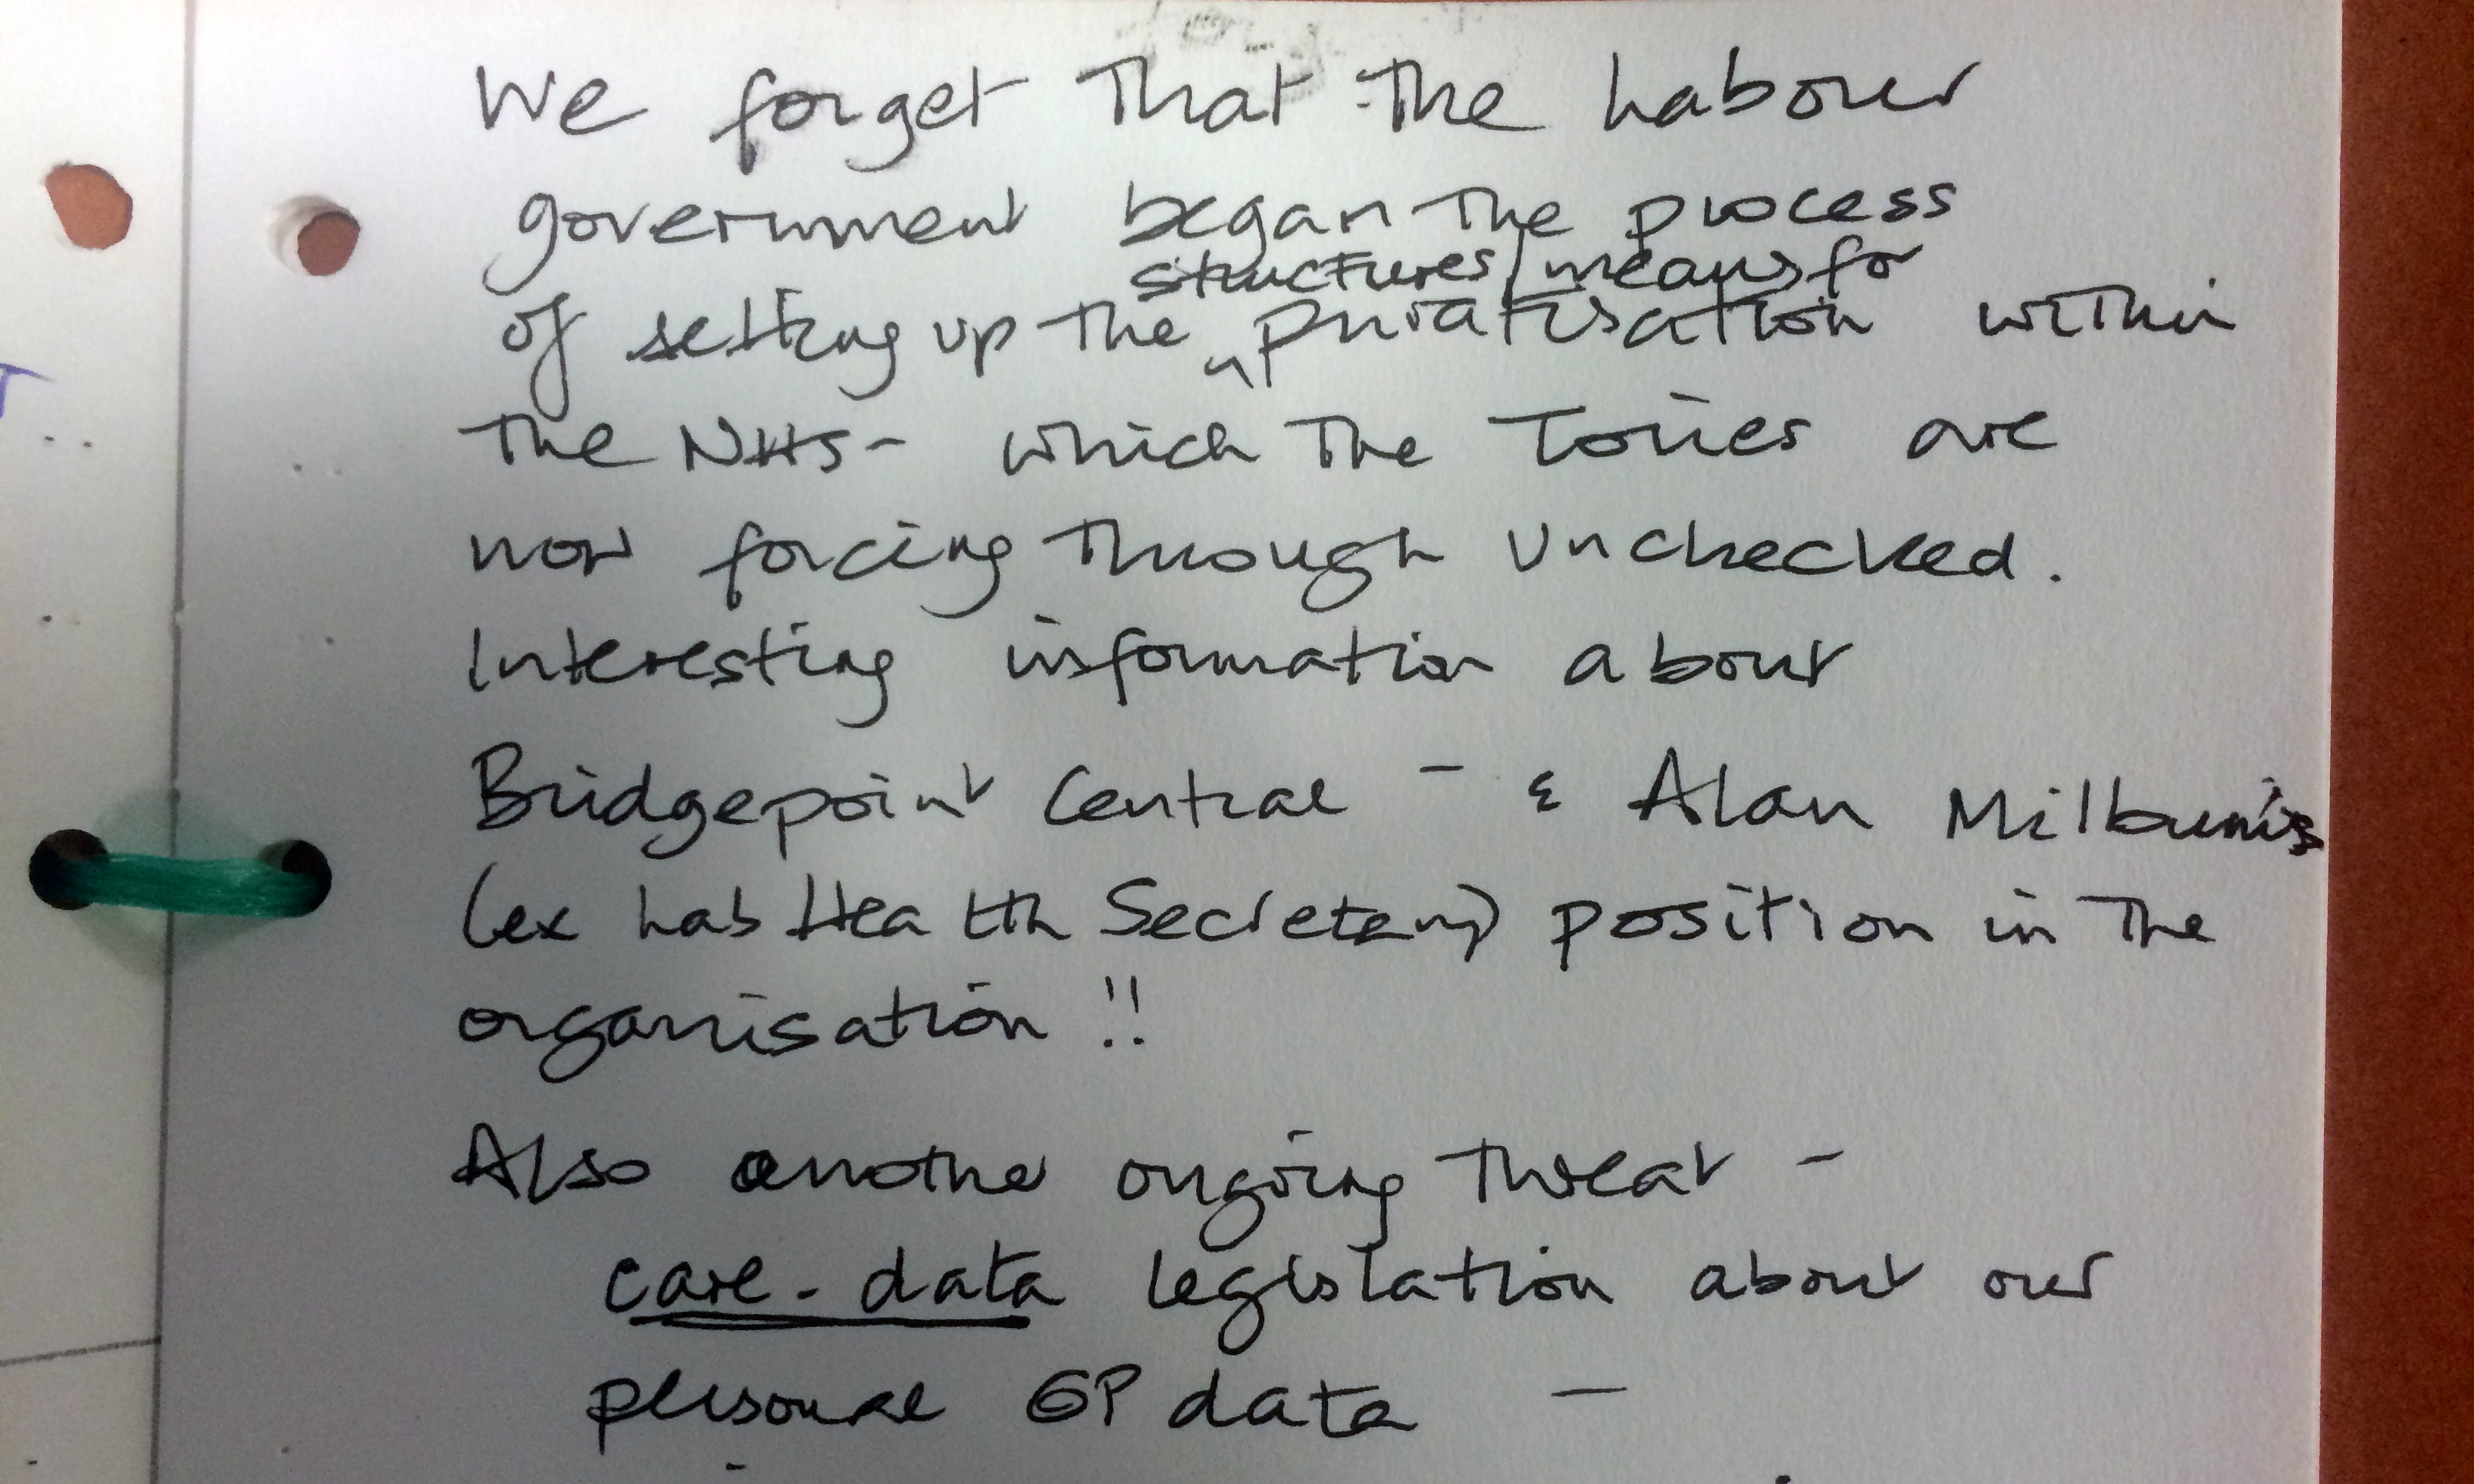 We forget that the Labour
government began the process
structures/means for
of setting up the ^ privatisation within
the NHS - which the Tories are
now forcing through unchecked.
Interesting information about
Bridgepoint Central - & Alan Milburn's
(ex Lab Health Secretary) position in the
organisation !!
Also another ongoing threat -
care - data legislation about our
personal GP data -